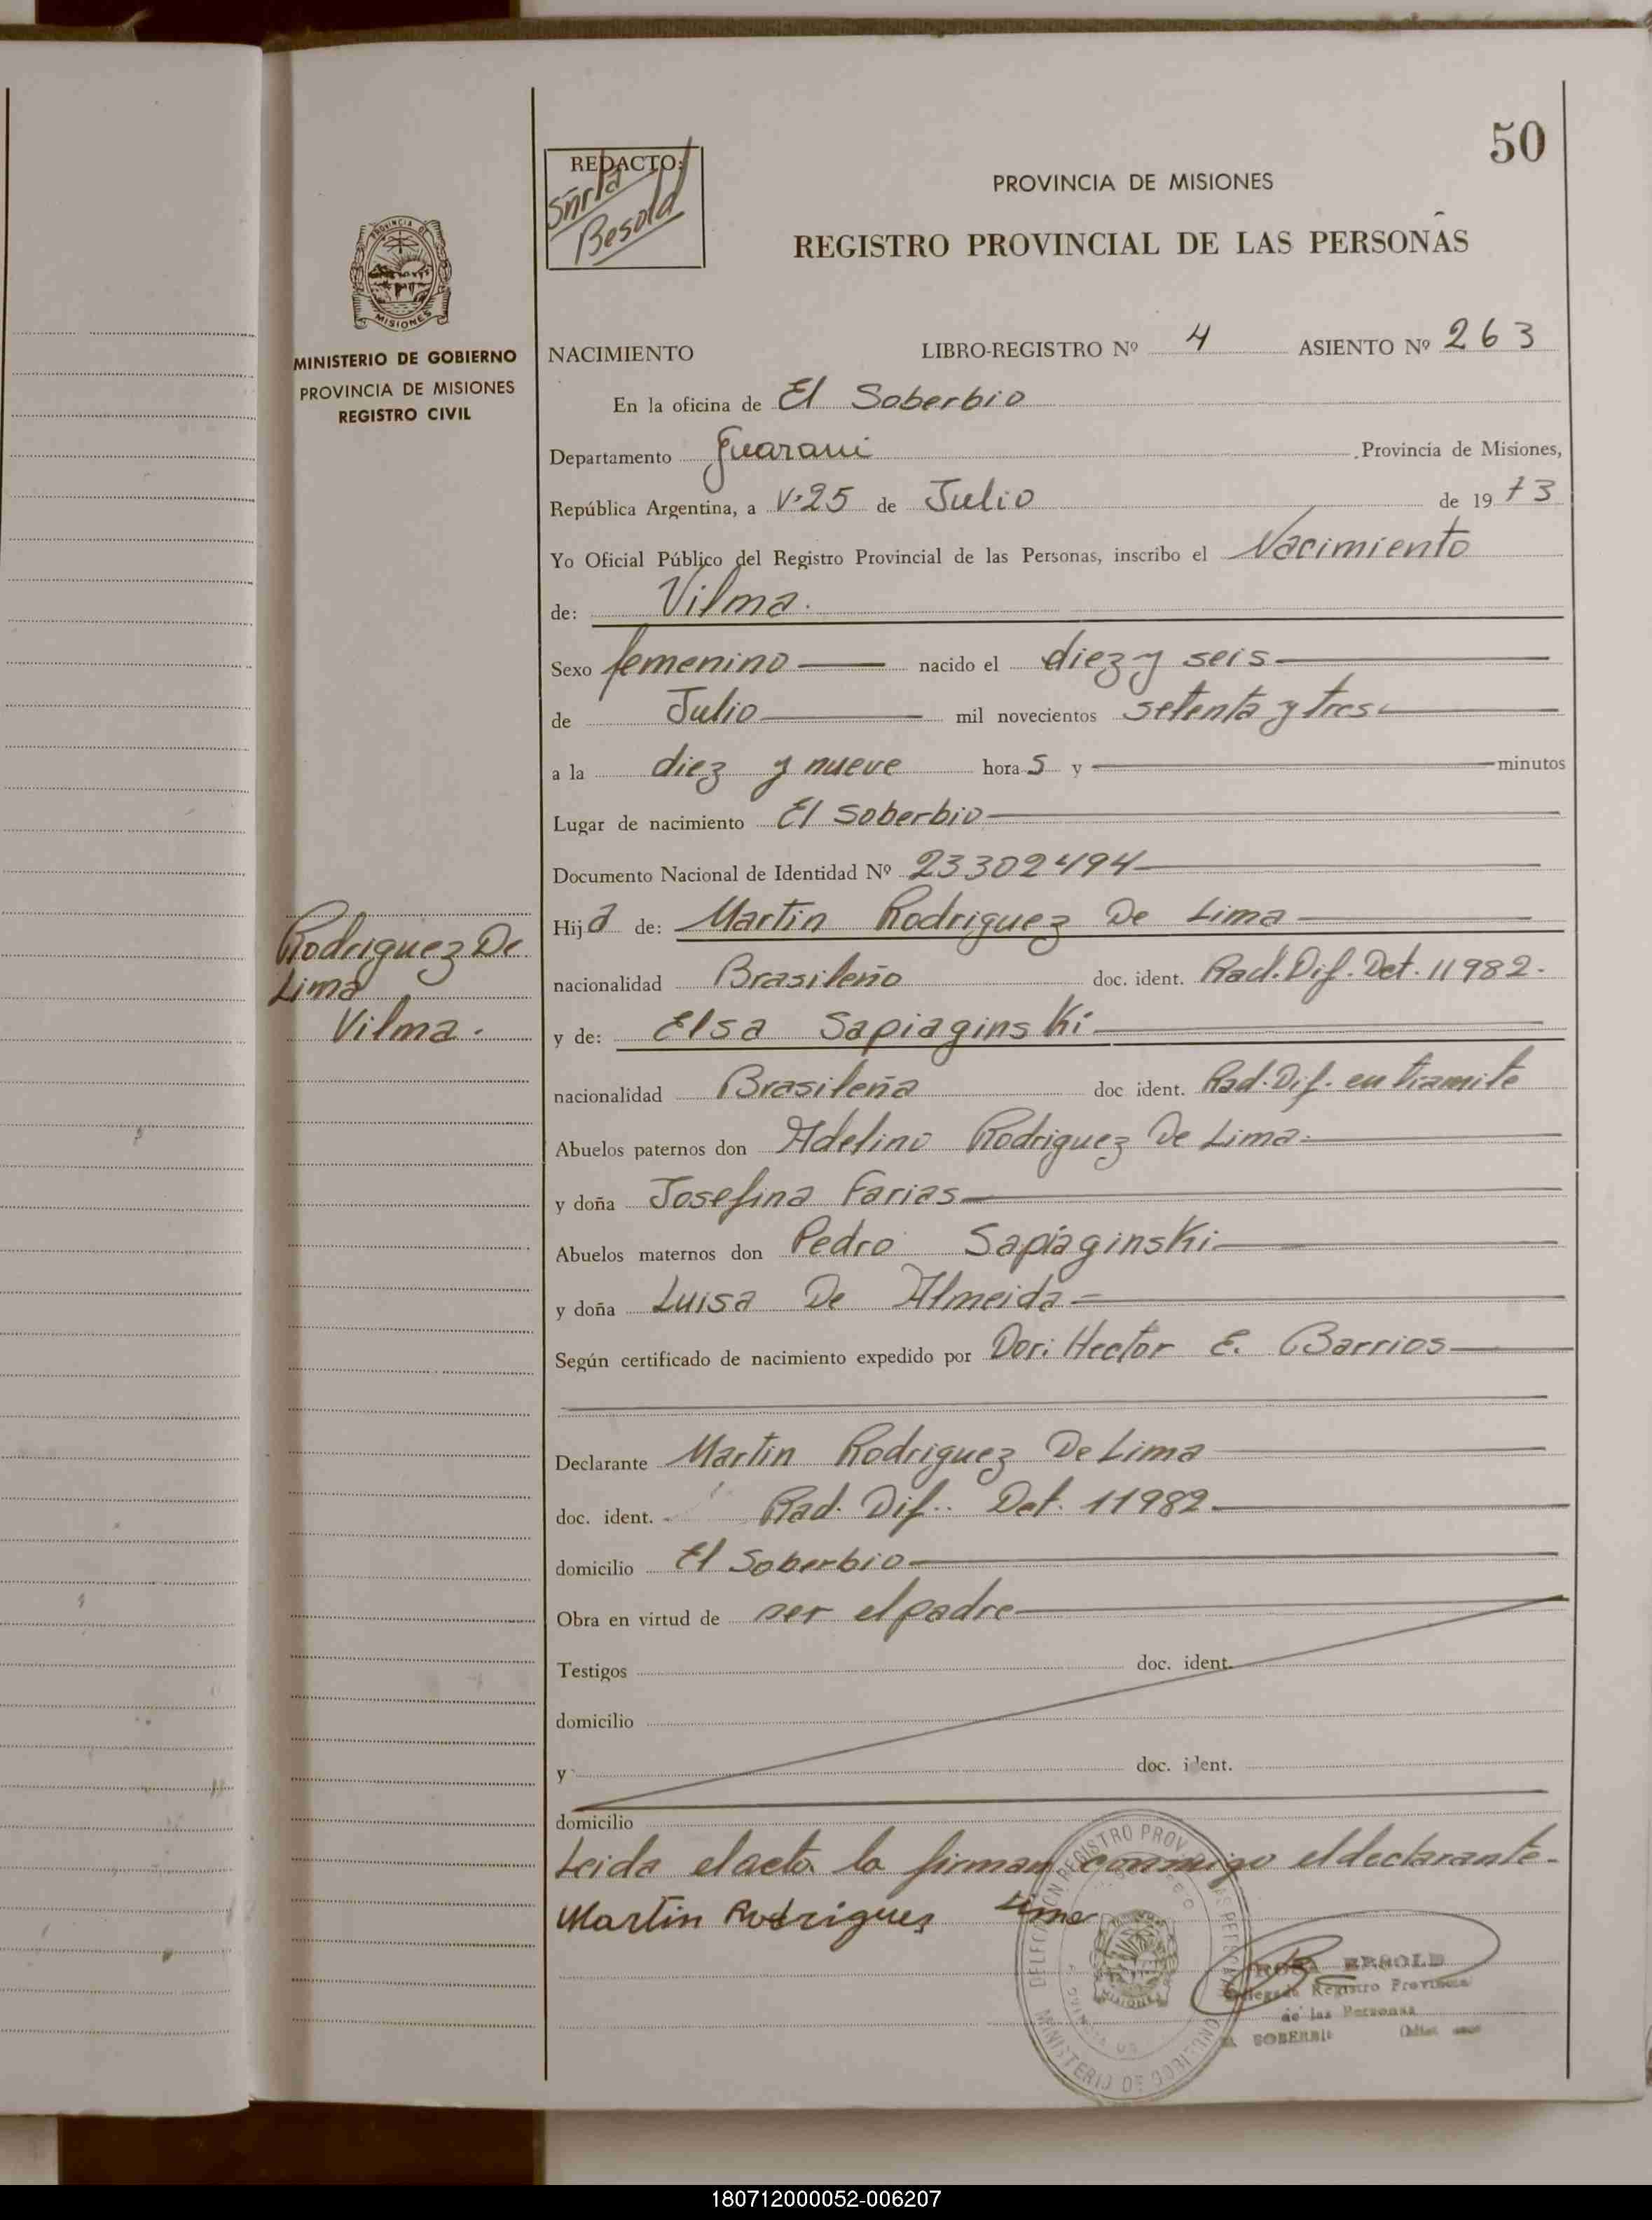 50
REDACTO:
Snrta
Besold
PROVINCIA DE MISIONES
REGISTRO PROVINCIAL DE LAS PERSONAS
PROVINCIA DE
MISIONES
MINISTERIO DE GOBIERNO
PROVINCIA DE MISIONES
REGISTRO CIVIL
NACIMIENTO LIBRO-REGISTRO Nº 4 ASIENTO Nº 263
En la oficina de El Soberbio
Departamento Guarani Provincia de Misiones,
República Argentina, a V.25 de Julio de 1973
Yo Oficial Público del Registro Provincial de las Personas, inscribo el Nacimiento
de: Vilma.
Sexo femenino nacido el diez y seis
de Julio mil novecientos setenta y tres
a la diez y nueve hora s y minutos
Lugar de nacimiento El Soberbio
Documento Nacional de Identidad Nº 23302494
Hija de: Martin Rodriguez De Lima
Rodriguez De
Lima
Vilma.
nacionalidad Brasileño doc. ident. Rad. Dif. Det. 11982.
y de: Elsa Sapiaginski
nacionalidad Brasileña doc ident. Rad. Dif. en tramite
Abuelos paternos don Adelino Rodriguez De Lima
y doña Josefina Farias
Abuelos maternos don Pedro Sapiaginski
y doña Luisa De Almeida
Según certificado de nacimiento expedido por Dor: Hector E. Barrios
Declarante Martin Rodriguez De Lima
doc. ident. Rad. Dif. Det. 11982
domicilio El Soberbio
Obra en virtud de ser el padre
Testigos doc. ident.
domicilio
y doc. ident.
domicilio
Leida el acta la firman conmigo el declarante.
Martin Rodrigues Lima
REGISTRO PROV
MINISTERIO DE GOBIERNO
MISIONES
ROSA BESOLD
Delegada Registro Provincial
de las Personas
SOBERBIO
180712000052-006207